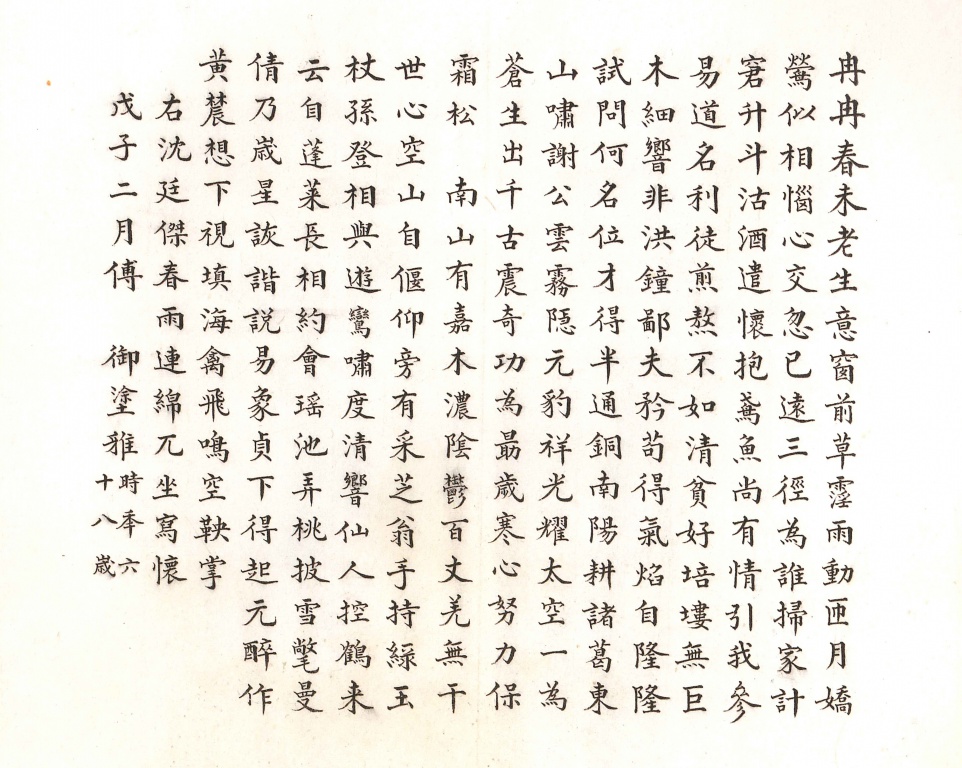 冉冉春未老生意窗前草霪雨動匝月嬌
鶯似相惱心交忽已遠三徑為誰掃家計
窘升斗沽酒遣懷抱鳶魚尚有情引我參
易道名利徒煎熬不如清貧好培塿無巨
木細響非洪鐘鄙夫矜苟得氣焰自隆隆
試問何名位才得半通銅南陽耕諸葛東
山嘯謝公雲霧隱元豹祥光耀太空一為
蒼生出千古震奇功為最歲寒心努力保
霜松 南山有嘉木濃陰鬱百丈羌無干
世心空山自偃仰旁有采芝翁手持綠玉
杖孫登相與遊鸞嘯度清響仙人控鶴来
云自蓬萊長相約會瑶池弄桃披雪氅曼
倩乃歲星詼諧説易象貞下得起元醉作
黃農想下視填海禽飛鳴空鞅掌
右沈廷傑春雨連綿兀坐寫懷
戊子二月傅 御塗雅時年六
十八歲